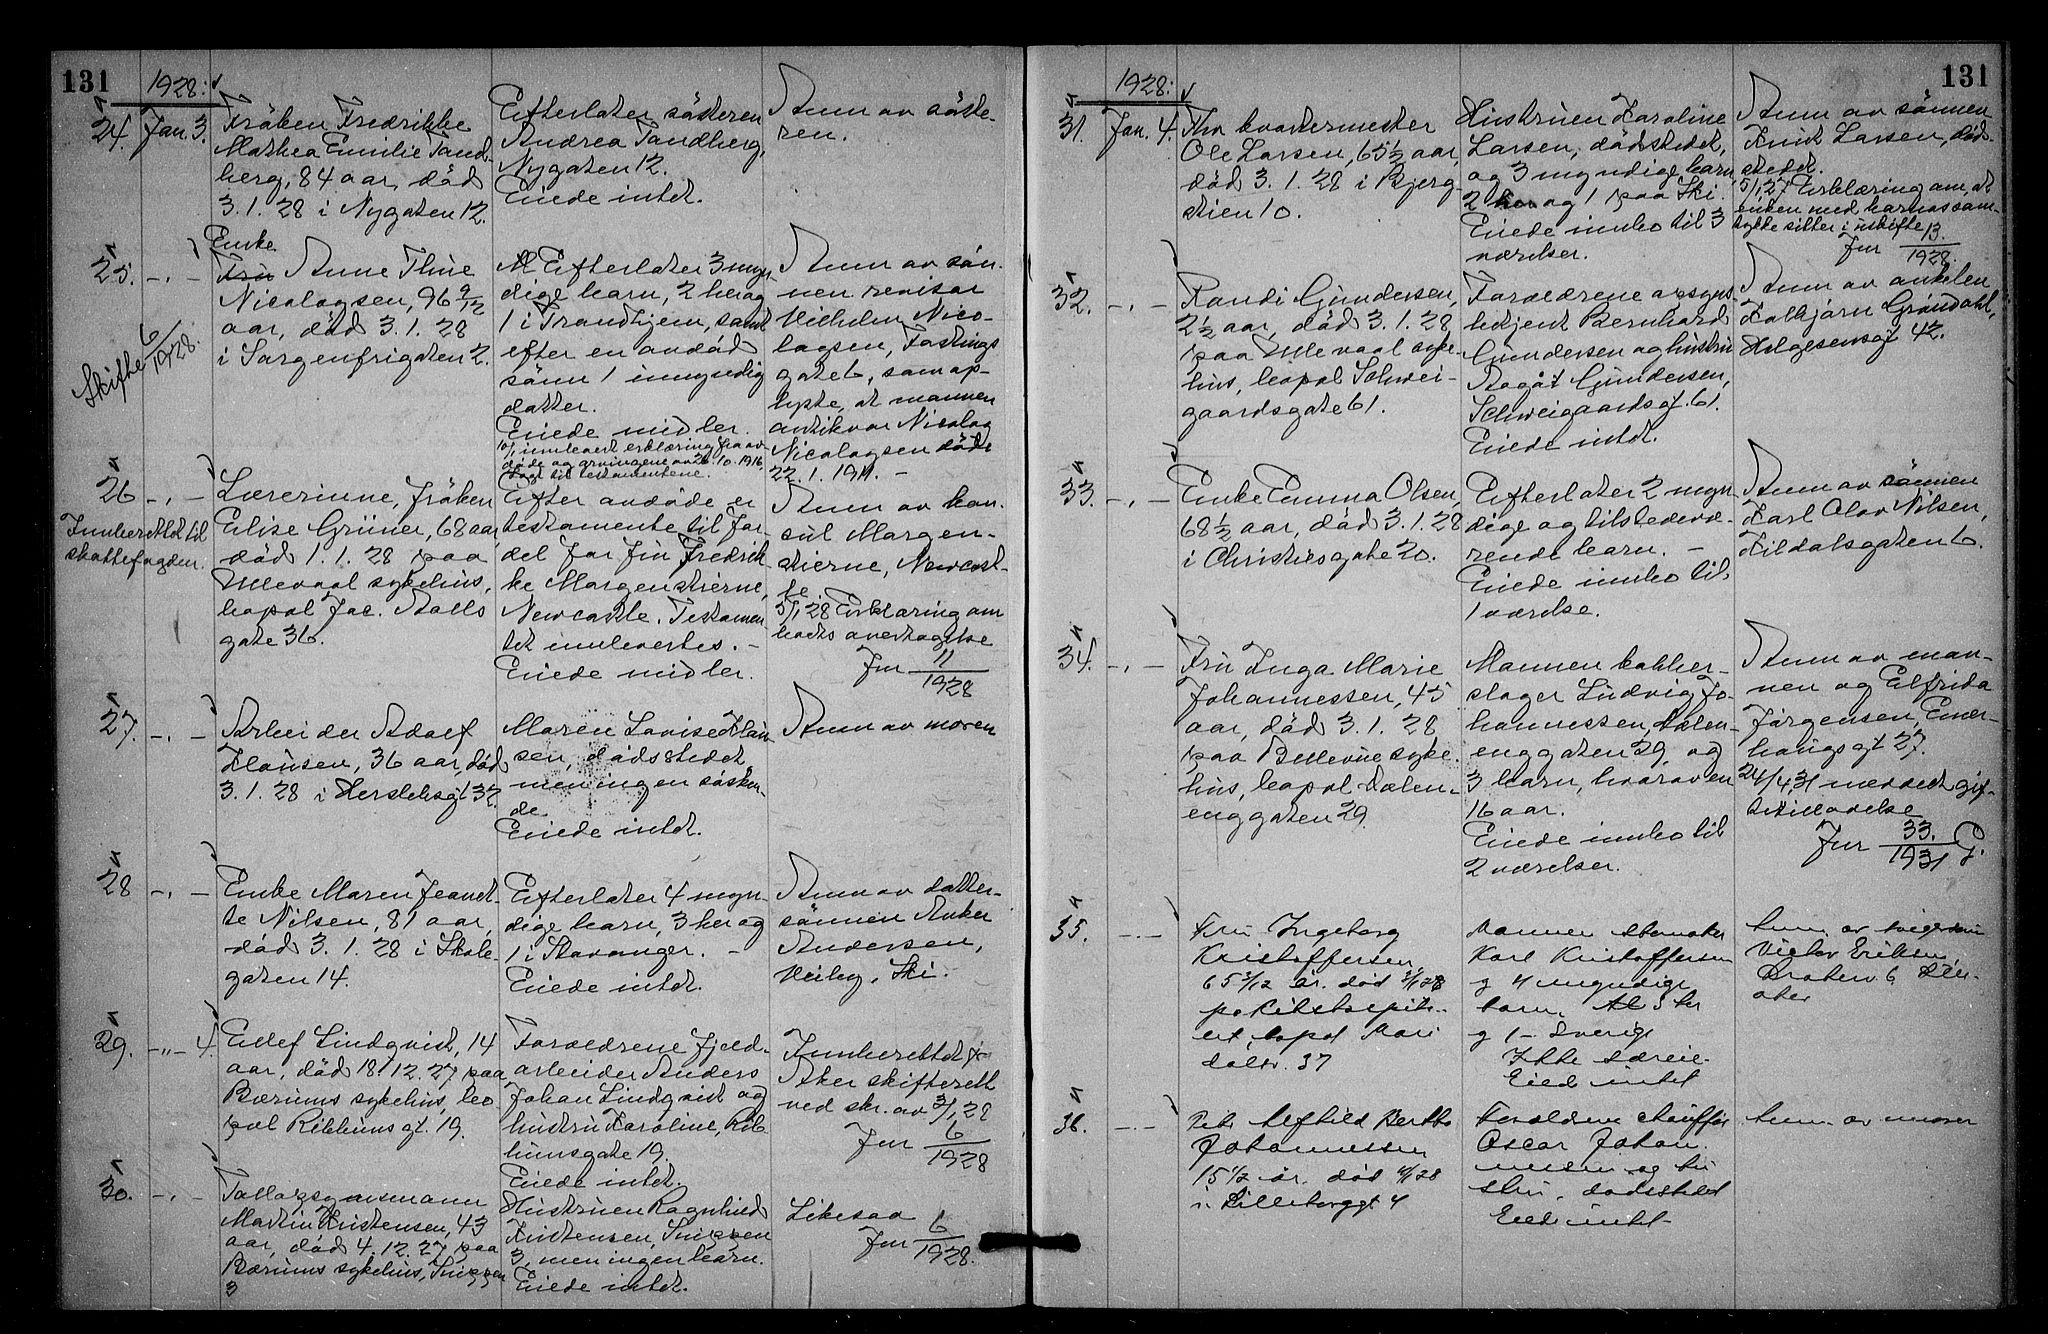 131
1928:
24. Jan. 3.
Fröken Fredrikke
Mathea Emilie Tand-
berg, 84 aar, död
3.1.28 i Nygaten 12.
Efterlater sösteren
Andrea Tandberg,
Nygaten 12.
Eiede intet.
Anm av söste-
ren.
25. -"-
Enke
Fru Anne Thue
Nicolaysen, 96 9/12
aar, död 3.1.28
i Sorgenfrigaten 2.
Skifte 6/1928.
Efterlater 3 myn-
dige barn, 2 her og
1 i Trondhjem, samt
efter en avdöd
sönn 1 umyndig
datter.
Eiede midler.
10/1 innlevert erklæring fra av-
döde og arvingene av 26.10.1916,
lagt til testamentene.
Anm av sön-
nen revisor
Vilhelm Nico-
laysen, Fastings
gate 6, som op-
lyste, at mannen
antikvar Nicolay
Nicolaysen döde
22.1.1911. -
26 -"-
Innberettet til
skattefogden.
Lærerinne, fröken
Elise Grüner, 68 aar,
död 1.1.28 paa
Ullevaal sykehus,
bopæl Jac. Aalls
gate 36.
Efter avdöde er
testamente til for-
del for fru Fredrik-
ke Morgenstierne,
Newcastle. Testamen-
tet innlevertes. -
Eiede midler.
Anm av kon-
sul Morgen-
stierne, Newcast-
le.
5/1 28 Erklæring om
boets overtagelse
Jnr 11/1928
27. -"-
Arbeider Adolf
Klausen, 36 aar, död
3.1.28 i Herslebsgt 32.
Maren Lovise Klau-
sen, dödsstedet,
men ingen sösken-
de.
Eiede intet.
Anm av moren
28 -"-
Enke Maren Jeanet-
te Nilsen, 81 aar,
död 3.1.28 i Skole-
gaten 14.
Efterlater 4 myn-
dige barn, 3 her og
1 i Stavanger. -
Eiede intet.
Anm av datter-
sönnen Anker
Andersen,
Ski.
29. -"- 4.
Lindqvist, 14
aar, död 18.12.27 paa
Bærums sykehus, bo
pæl Ribbungt. 19.
Forældrene fjeld-
arbeider Anders
Johan Lindqvist og
hustru Karoline, Rib
bungsgate 19.
Eiede intet.
Innberettet fr
Aker skifterett
ved skr. av 3/1 28
Jnr 6/1928
30. -"-
Martin Kristensen, 43
aar, död 4.12.27 paa
Bærums sykehus,
3
Hustruen Ragnhild
Kristensen,
3, men ingen barn.
Eiede intet.
Likesaa
Jnr 6/1928.
131
1928:
31. Jan. 4.
Fhv kvartermester
Ole Larsen, 65 1/2 aar,
död 3.1.28 i Bjerg-
stien 10.
Hustruen Karoline
Larsen, dödsstedet,
og 3 myndige barn,
2 her og 1 paa Ski.
Eiede innbo til 3
værelser.
Anm av sönnen
Knut Larsen, död-
stedet.
5/1 27 Erklæring om, at
enken med barnas sam-
tykke sitter i uskifte
Jnr 13./1928.
32. -"-
Randi Gundersen,
2 1/2 aar, död 3.1.28
paa Ullevaal syke-
hus, bopæl Schwei-
gaardsgate 61.
Forældrene opsyns-
betjent Bernhard
Gundersen og hustru
Aagot Gundersen,
Schweigaardsgt. 61.
Eiede intet.
Anm av onkelen
Grøndahl,
Helgesensgt 42.
33. -"-
Enke Emma Olsen,
68 1/2 aar, död 3.1.28
i Christiesgate 20.
Efterlater 2 myn
dige og tilstedevæ-
rende barn. -
Eiede innbo til
1 værelse.
Anm av sönnen
Karl Olav Nilsen,
Kildalsgaten 6.
34. -"-
Fru Inga Marie
Johannessen, 45
aar, död 3.1.28
paa Bellevue syke-
hus, bopæl Dælen-
enggaten 29.
Mannen kobber-
slager Ludvig Jo-
hannessen, Dælen-
enggaten 29, og
3 barn, hvorav en
16 aar.
Eiede innbo til
2 værelser.
Anm av man-
nen og Elfrida
Jörgensen, Ener-
haugsgt 27.
24/4 31 meddelt gif-
tetillatelse
Jnr 33./1931 G.
35. -"-
Fru Ingeborg
Kristoffersen
65 3/12 år. død 3/1 28
på Rikshospita-
let, bopæl Mari
dalsv. 37
Mannen stenhoker
Karl Kristoffersen
og 4 myndige
barn. 3 her
og 1 Sverige
Ikke særeie.
Eied intet
Anm. av svigersønn
Victor Eriksen,
6
aker
36. -"-
Alfhild Berthe
Johannessen
15 1/2 år. død 4/1 28
i Lilleborggt 4
Foreldrene chauffør
Oscar Johan-
nessen og hu
stru, dødsstedet
Eiede intet
Anm. av moren